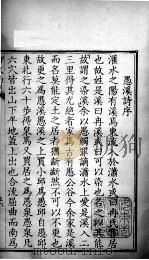 愚溪詩序
灌水之陽有溪焉東流入於瀟水或曰冉氏嘗居
也故姓是溪曰冉溪或曰可以染也名之以其能
故謂之染溪余以愚觸罪謫瀟水上愛是溪入二
三里得其尤絕者家焉古有愚公谷今余家是溪
而名莫能定土之居者猶齗齗然不可以不更也
故更之爲愚溪愚溪之上買小邱爲愚邱自愚邱
東北行六十步得泉焉又買居之爲愚泉愚泉凡
六穴皆出山下平地蓋上出也合流屈曲而南爲